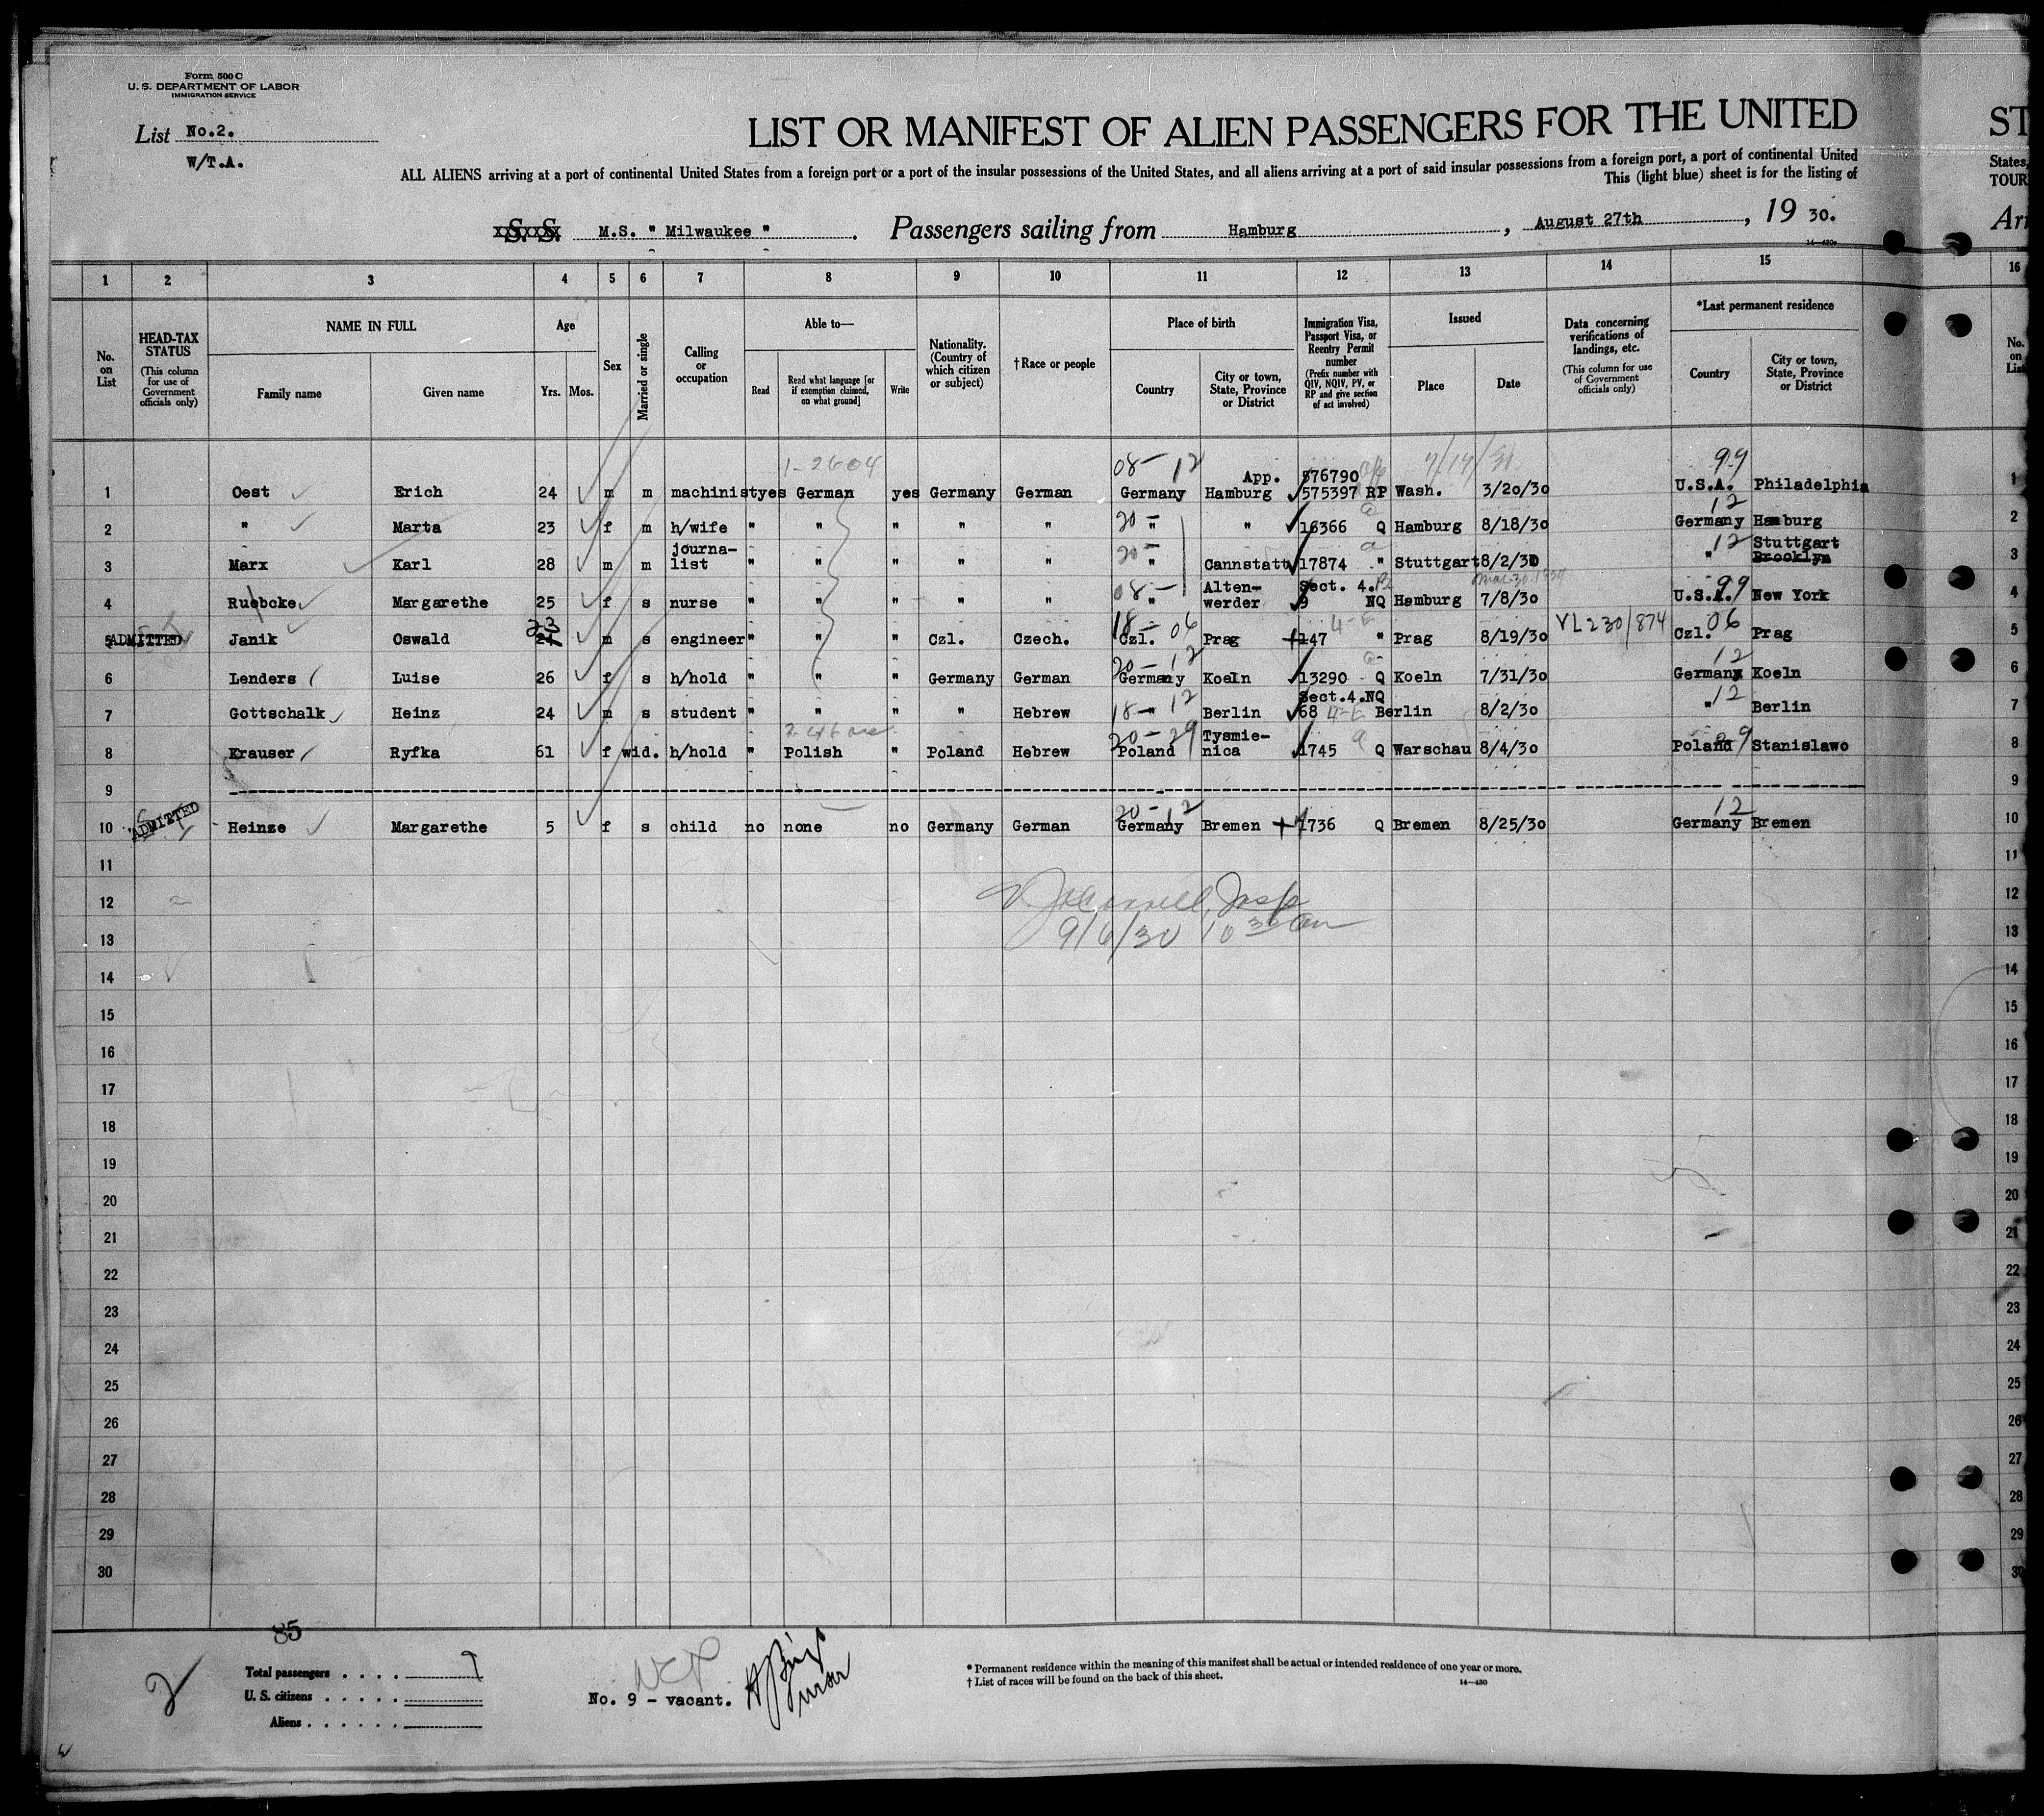 Form 500 C
U. S. DEPARTMENT OF LABOR
IMMIGRATION SERVICE
List No.2.
W/T.A.
LIST OR MANIFEST OF ALIEN PASSENGERS FOR THE UNITED
ST
ALL ALIENS arriving at a port of continental United States from a foreign port or a port of the insular possessions of the United States, and all aliens arriving at a port of said insular possessions from a foreign port, a port of continental United
States,
This (light blue) sheet is for the listing of
TOUR
S. S. M.S. " Milwaukee ". Passengers sailing from Hamburg, August 27th, 19 30.
Arr
14—430
1 2 3 4 5 6 7 8 9 10 11 12 13 14 15 16
No. on List
HEAD-TAX STATUS
(This column for use of Government officials only)
NAME IN FULL
Family name
Given name
Age
Yrs.
Mos.
Sex
Married or single
Calling or occupation
Able to—
Read
Read what language [or if exemption claimed, on what ground]
Write
Nationality. (Country of which citizen or subject)
† Race or people
Place of birth
Country
City or town, State, Province or District
Immigration Visa, Passport Visa, or Reentry Permit number
(Prefix number with QIV, NQIV, PV, or RP and give section of act involved)
Issued
Place
Date
Data concerning verifications of landings, etc.
(This column for use of Government officials only)
*Last permanent residence
Country
City or town, State, Province or District
No. on List
1-2604 08- 12 App. 576790 7/19/31 99
1 Oest Erich 24 m m machinist yes German yes Germany German Germany Hamburg 575397 RP Wash. 3/20/30 U.S.A. Philadelphia 1
20- 12
2 " Marta 23 f m h/wife " " " " " " " 16366 Q Hamburg 8/18/30 Germany Hamburg 2
journa- 20- 12 Stuttgart
3 Marx Karl 28 m m list " " " " " " Cannstatt 17874 " Stuttgart 8/2/30 " Brooklyn 3
08- Alten- Sect. 4. 99
4 Ruebcke Margarethe 25 f s nurse " " " " " " werder 9 NQ Hamburg 7/8/30 U.S.A. New York 4
23 18- 06 4-E VL230/874 06
ADMITTED 5 Janik Oswald 24 m s engineer " " " Czl. Czech. Czl. Prag 147 " Prag 8/19/30 Czl. Prag 5
20-12 12
6 Lenders Luise 26 f s h/hold " " " Germany German Germany Koeln 13290 Q Koeln 7/31/30 Germany Koeln 6
Sect.4.NQ 12
7 Gottschalk Heinz 24 m s student " " " " Hebrew 18- " 12 Berlin 68 4-E Berlin 8/2/30 " Berlin 7
20-29 Tysmie-
8 Krauser Ryfka 61 f wid. h/hold " Polish " Poland Hebrew Poland nica 1745 Q Warschau 8/4/30 Poland Stanislawo 8
9 9
ADMITTED 20-12 12
10 Heinze Margarethe 5 f s child no none no Germany German Germany Bremen 1736 Q Bremen 8/25/30 Germany Bremen 10
11 11
12 12
9/6/30 10 30 am
13 13
14 14
15 15
16 16
17 17
18 18
19 19
20 20
21 21
22 22
23 23
24 24
25 25
26 26
27 27
28 28
29 29
30 30
85
2
Total passengers . . . . 9
U. S. citizens . . . . .
Aliens . . . . . .
No. 9 - vacant.
* Permanent residence within the meaning of this manifest shall be actual or intended residence of one year or more.
† List of races will be found on the back of this sheet.
14—430